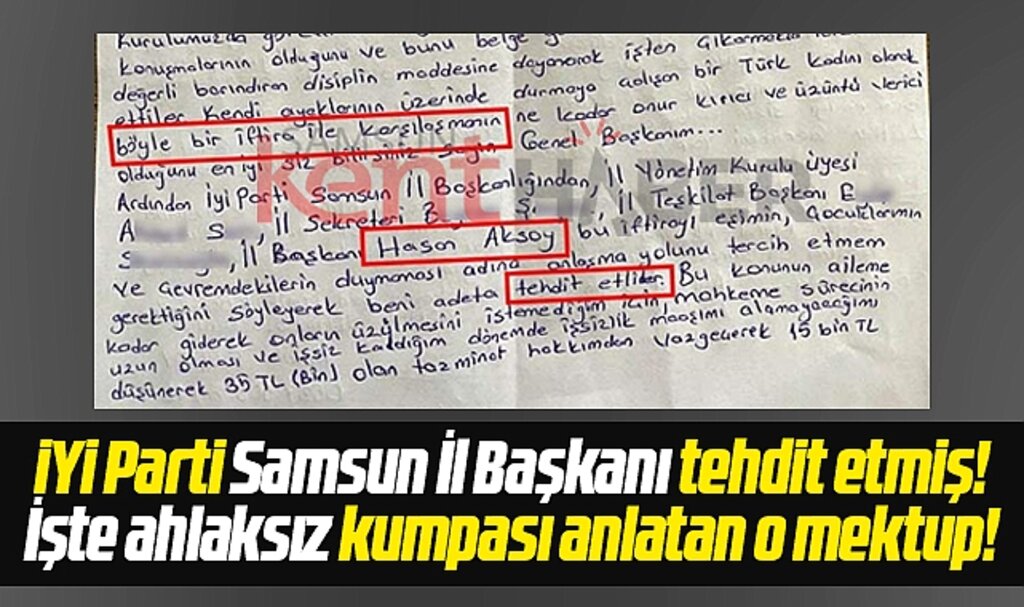 Kurulumuzda
konuşmalarının olduğunu ve bunu belge
değerli barındıran disiplin maddesine dayanarak işten çıkarmakla
ettiler kendi ayaklarının üzerinde durmaya çalışan bir Türk kadını olarak
böyle bir iftira ile karşılaşmanın ne kadar onur kırıcı ve üzüntü verici
olduğunu en iyi siz bilirsiniz Sayın Genel Başkanım...
Ardından İyi Parti Samsun İl Başkanlığından, İl Yönetim Kurulu Üyesi
A S , İl Sekreteri B Ş. , İl Teşkilat Başkanı E
S , İl Başkanı Hasan Aksoy bu iftirayı eşimin, çocuklarımın
ve çevremdekilerin duymaması adına anlaşma yolunu tercih etmem
gerektiğini söyleyerek beni adeta tehdit ettiler. Bu konunun aileme
kadar giderek onların üzülmesini istemediğim için mahkeme sürecinin
uzun olması ve işsiz kaldığım dönemde işsizlik maaşımı alamayacağımı
düşünerek 35 TL (Bin) olan tazminat hakkımdan vazgeçerek 15 bin TL
SAMSUN
kent HABER
İYİ Parti Samsun İl Başkanı tehdit etmiş!
İşte ahlaksız kumpası anlatan o mektup!